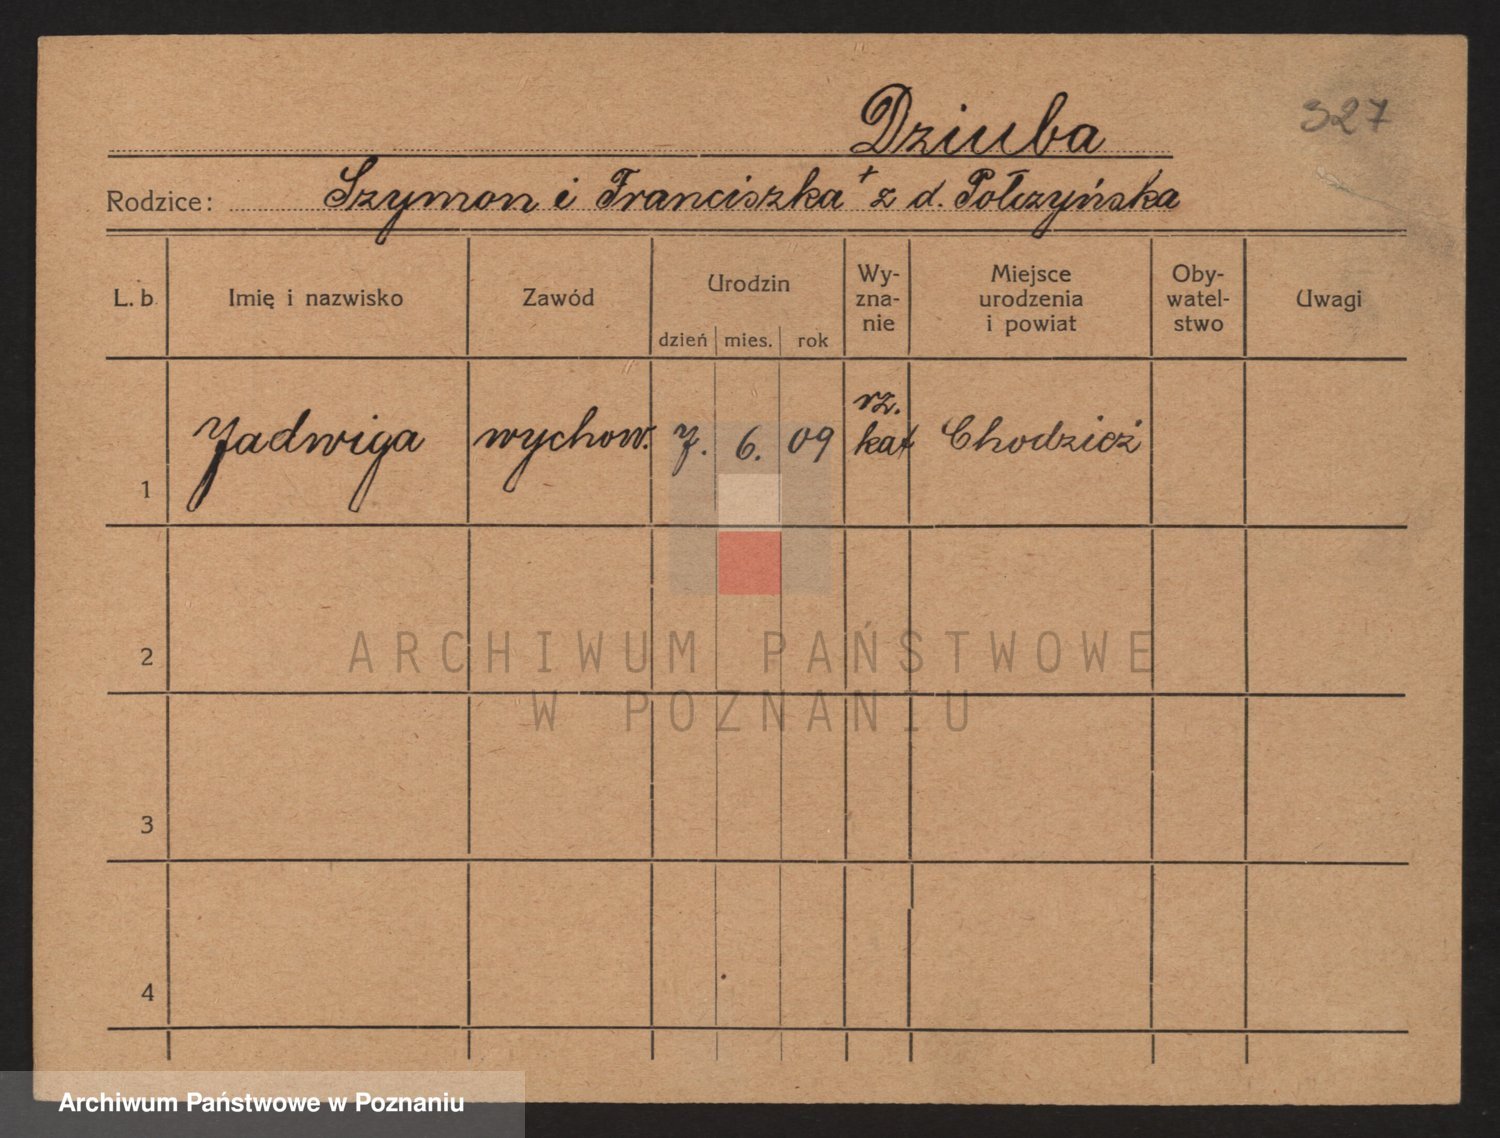 Dziuba
327
Rodzice: Szymon i Franciszka + z d. Połczyńska
L. b. Imię i nazwisko Zawód Urodzin dzień mies. rok Wy-zna-nie Miejsce urodzenia i powiat Oby-watel-stwo Uwagi
1 Jadwiga wychow. 7. 6. 09 rz. kat Chodzież
2
ARCHIWUM PAŃSTWOWE
W POZNANIU
3
4
Archiwum Państwowe w Poznaniu